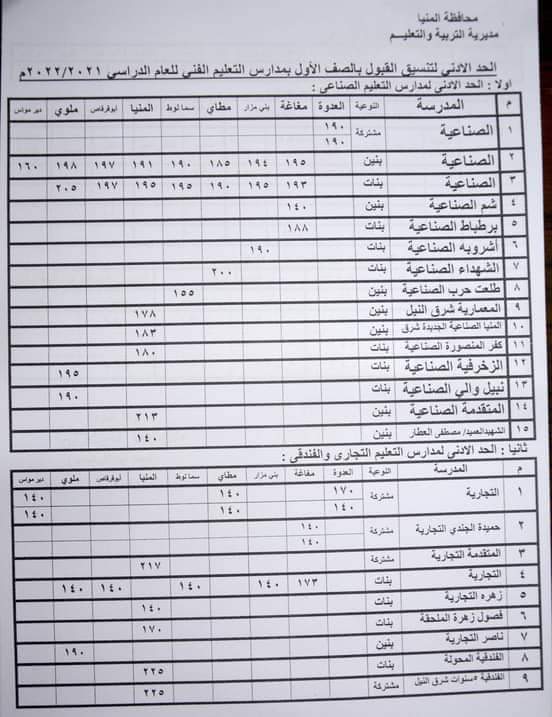 محافظة المنيا
مديرية التربية والتعليم
الحد الادني لتنسيق القبول بالصف الأول بمدارس التعليم الفني للعام الدراسي ٢٠٢٢/٢٠٢١م
اولا : الحد الادني لمدارس التعليم الصناعى :
م المدرسة النوعية العدوة مغاغة بني مزار مطاي سمالوط المنيا ابوقرقاص ملوي دير مواس
١ الصناعية مشتركة ١٩٠
١٩٠
٢ الصناعية بنين ١٩٥ ١٩٤ ١٨٥ ١٩٠ ١٩١ ١٩٧ ١٩٨ ١٦٠
٣ الصناعية بنات ١٩٣ ١٩٥ ١٩٠ ١٩٥ ١٩٥ ١٩٧ ٢٠٥
٤ شم الصناعية بنين ١٤٠
٥ برطباط الصناعية بنات ١٨٨
٦ أشروبه الصناعية بنات ١٩٠
٧ الشهداء الصناعية بنات ٢٠٠
٨ طلعت حرب الصناعية بنين ١٥٥
٩ المعمارية شرق النيل بنين ١٧٨
١٠ المنيا الصناعية الجديدة شرق بنين ١٨٣
١١ كفر المنصورة الصناعية بنات ١٨٠
١٢ الزخرفية الصناعية بنات ١٩٥
١٣ نبيل والي الصناعية بنات ١٩٠
١٤ المتقدمة الصناعية بنين ٢١٣
١٥ الشهيد العميد/ مصطفى العطار بنين ١٤٠
ثانيا : الحد الادني لمدارس التعليم التجارى والفندقى :
م المدرسة النوعية العدوة مغاغة بني مزار مطاي سمالوط المنيا ابوقرقاص ملوي دير مواس
١ التجارية مشتركة ١٧٠ ١٤٠ ١٤٠
١٤٠ ١٤٠ ١٤٠
٢ حميدة الجندي التجارية مشتركة ١٤٠
١٤٠
٣ المتقدمة التجارية مشتركة ٢١٧
٤ التجارية بنات ١٧٣ ١٤٠ ١٤٠ ١٤٠ ١٤٠
٥ زهره التجارية بنات ١٤٠
٦ فصول زهرة الملحقة بنات ١٧٠
٧ ناصر التجارية بنين ١٩٠
٨ الفندقية المحولة بنات ٢٢٥
٩ الفندقية ٥سنوات شرق النيل مشتركة ٢٢٥